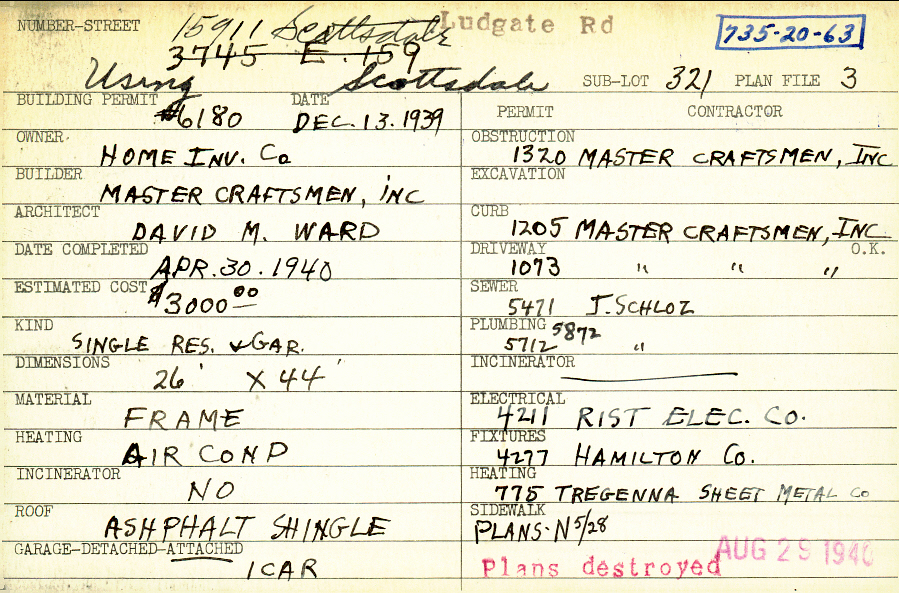 NUMBER-STREET 15911 Scottsdale Ludgate Rd 735-20-63
3745 E. 159
Using Scottsdale SUB-LOT 321 PLAN FILE 3
BUILDING PERMIT #6180 DATE DEC. 13. 1939
OWNER HOME INV. Co
BUILDER MASTER CRAFTSMEN, INC
ARCHITECT DAVID M. WARD
DATE COMPLETED APR. 30. 1940
ESTIMATED COST $3000 00
KIND SINGLE RES. & GAR.
DIMENSIONS 26' X 44'
MATERIAL FRAME
HEATING AIR COND
INCINERATOR NO
ROOF ASHPHALT SHINGLE
GARAGE-DETACHED-ATTACHED 1CAR
PERMIT CONTRACTOR
OBSTRUCTION 1320 MASTER CRAFTSMEN, INC
EXCAVATION
CURB 1205 MASTER CRAFTSMEN, INC.
DRIVEWAY 1073 " " " O.K.
SEWER 5471 J. SCHLOZ
PLUMBING 5872
5712 "
INCINERATOR
ELECTRICAL 4211 RIST ELEC. CO.
FIXTURES 4277 HAMILTON CO.
HEATING 775 TREGENNA SHEET METAL CO
SIDEWALK
PLANS-N 5/28
Plans destroyed AUG 29 1940